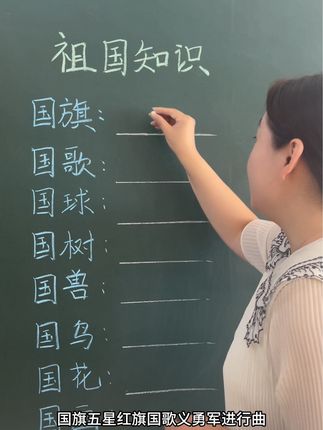 祖国知识
国旗：
国歌：
国球：
国树：
国兽：
国鸟：
国花：
国旗五星红旗国歌义勇军进行曲